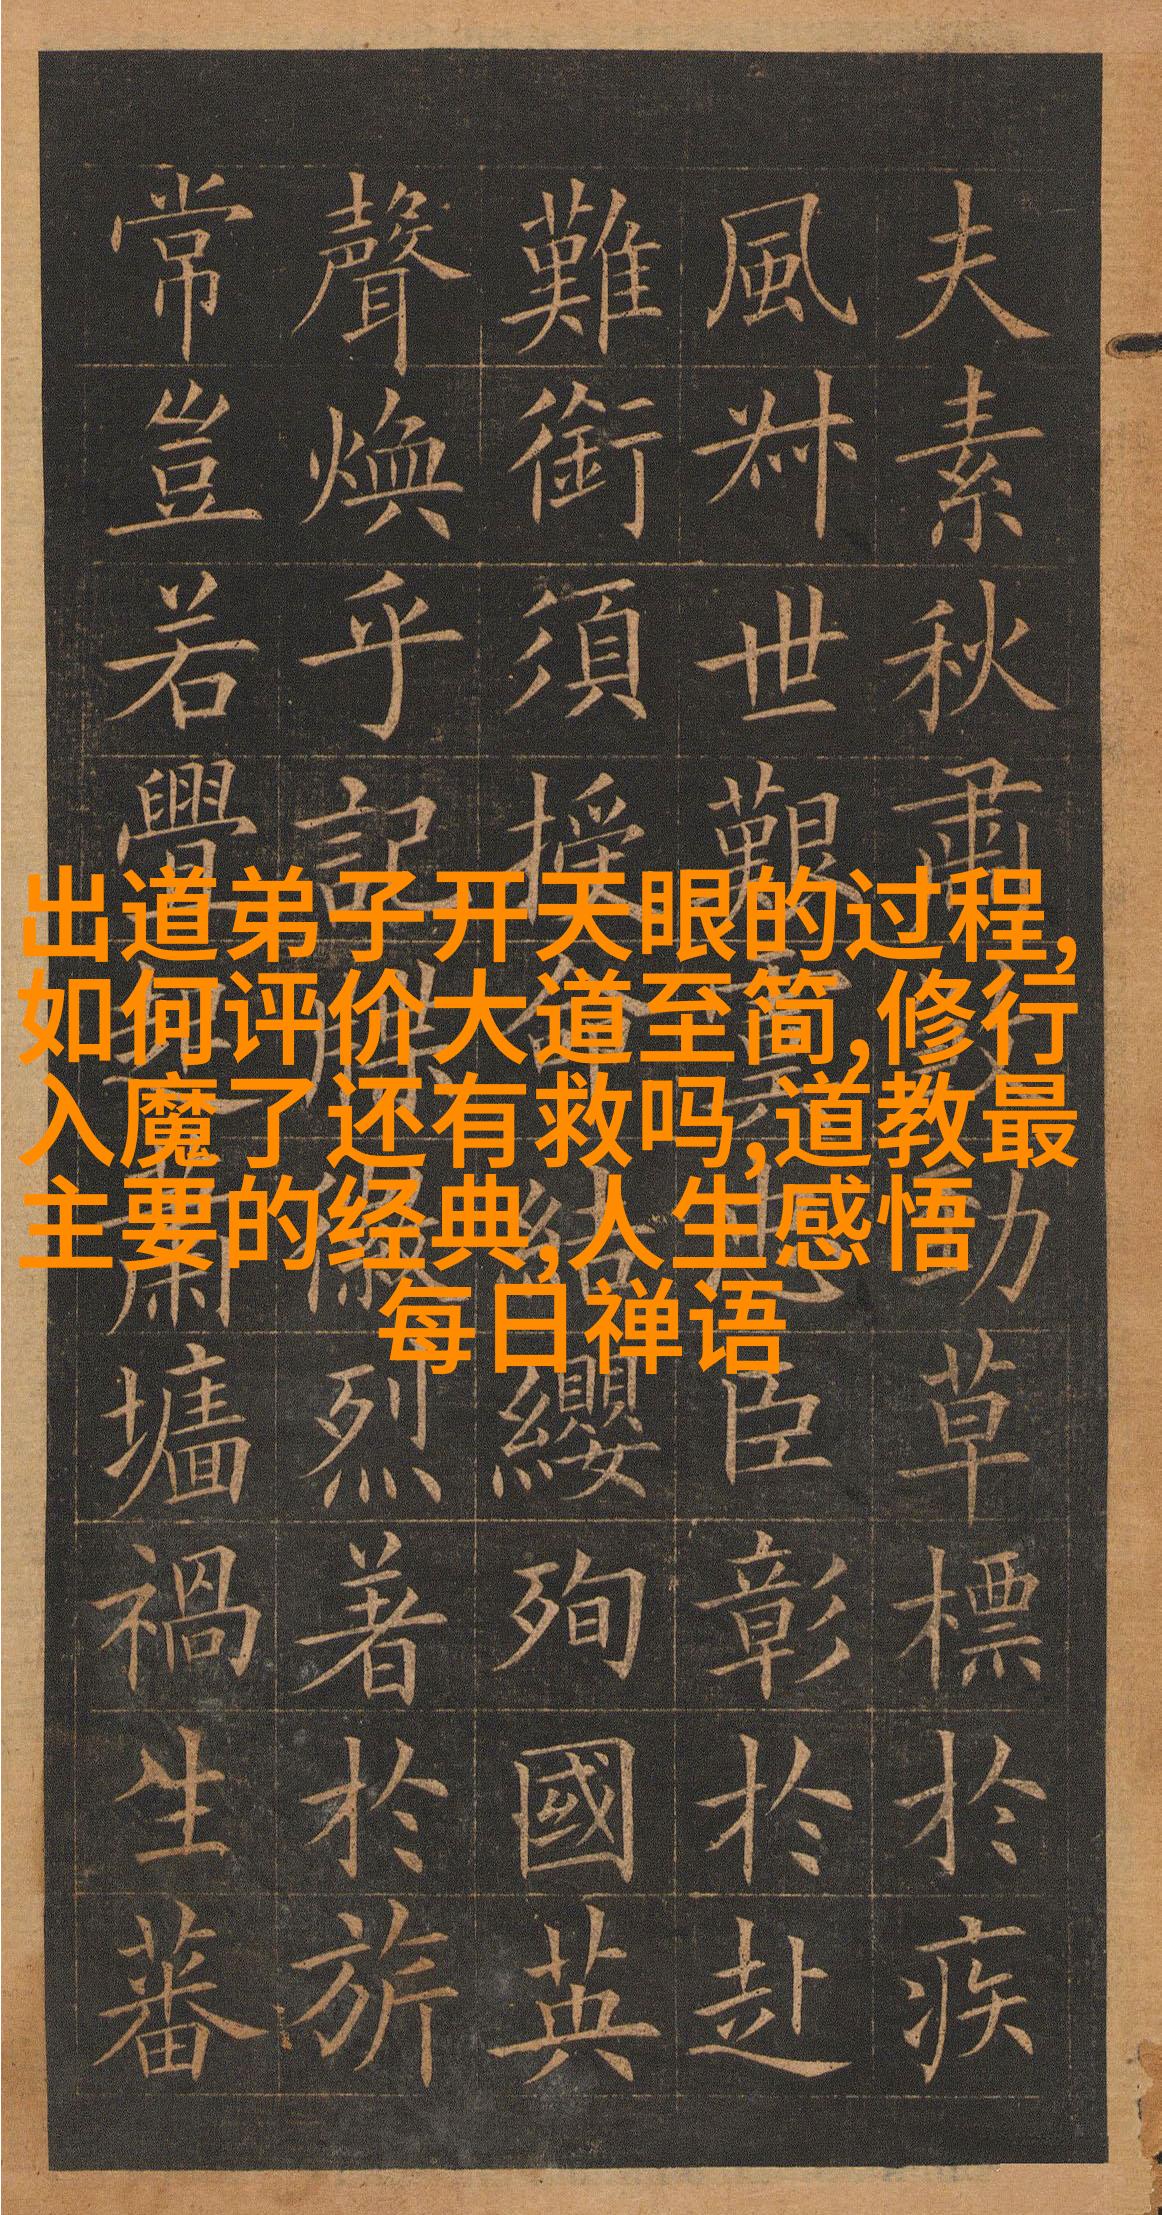 夫素秋肅勁草標於疾
風叔世艱虞忠臣彰於赴
難銜須授命結纓殉國英
聲煥乎記牒徽烈著於旂
常豈若舋起蕭墻禍生蕃
出道弟子开天眼的过程,
如何评价大道至简,修行
入魔了还有救吗,道教最
主要的经典,人生感悟
每日禅语